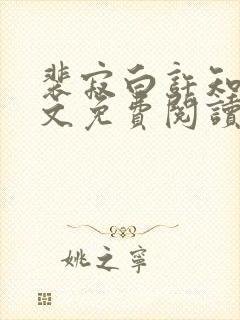 裴寂白許知
文免費閱讀
姚之寧